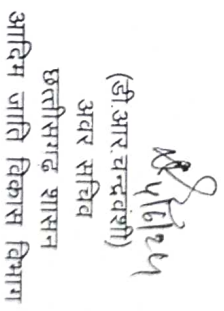 (डी.आर.चन्द्रवंशी)
अवर सचिव
छत्तीसगढ़ शासन
आदिम जाति विकास विभाग